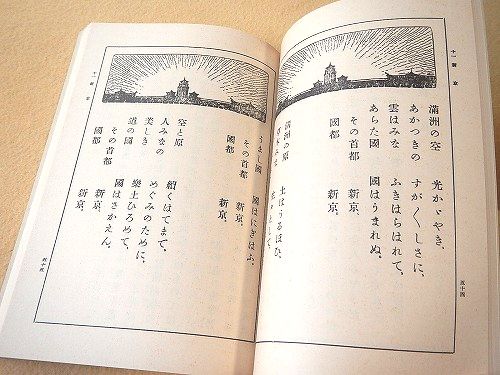 十一 新京
滿洲の空 光かゞやき、
あかつきの すが〳〵しさに、
雲はみな ふきはらはれて、
あらた國 國はうまれぬ。
その首都 新京、
國都 新京。
五十四
滿洲の原 土はうるほひ、
うまし國 國はにぎはふ、
その首都 新京、
國都 新京。
空と原 續くはてまで、
人みなの めぐみのために、
美しき 樂土ひろめて、
道の國 國はさかえん、
その首都 新京、
國都 新京。
十一 新京
五十五